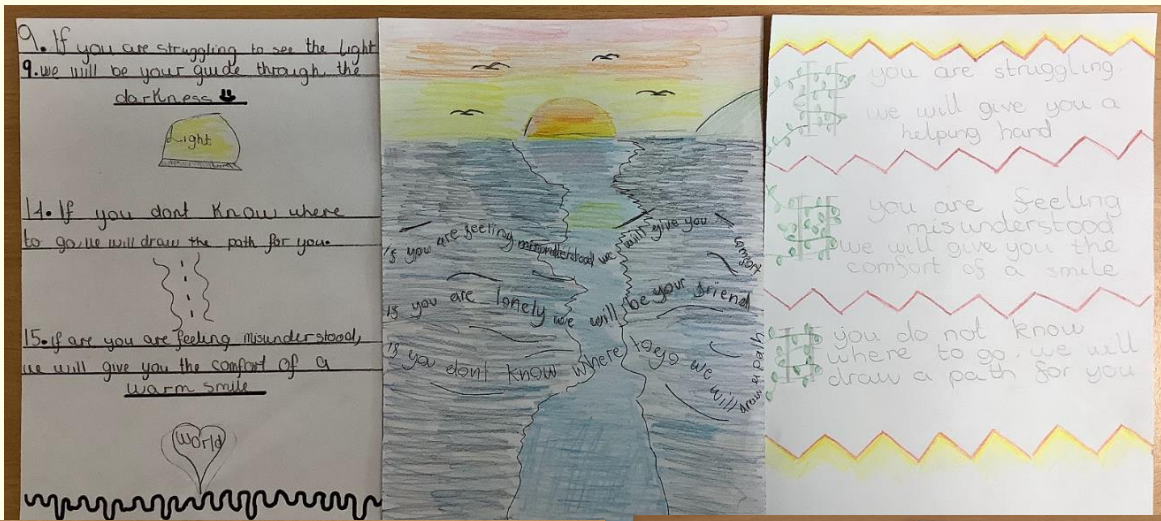 9. If you are struggling to see the light
9. we will be your guide through the
darkness
Light
14. If you dont know where
to go, we will draw the path for you.
15. if are you are feeling misunderstood,
we will give you the comfort of a
warm smile
world
if you are feeling misunderstood we will give you comfort
if you are lonely we will be your friend
if you dont know where to go we will draw a path
If you are struggling
we will give you a
helping hand
If you are feeling
misunderstood
we will give you the
comfort of a smile
If you do not know
where to go, we will
draw a path for you